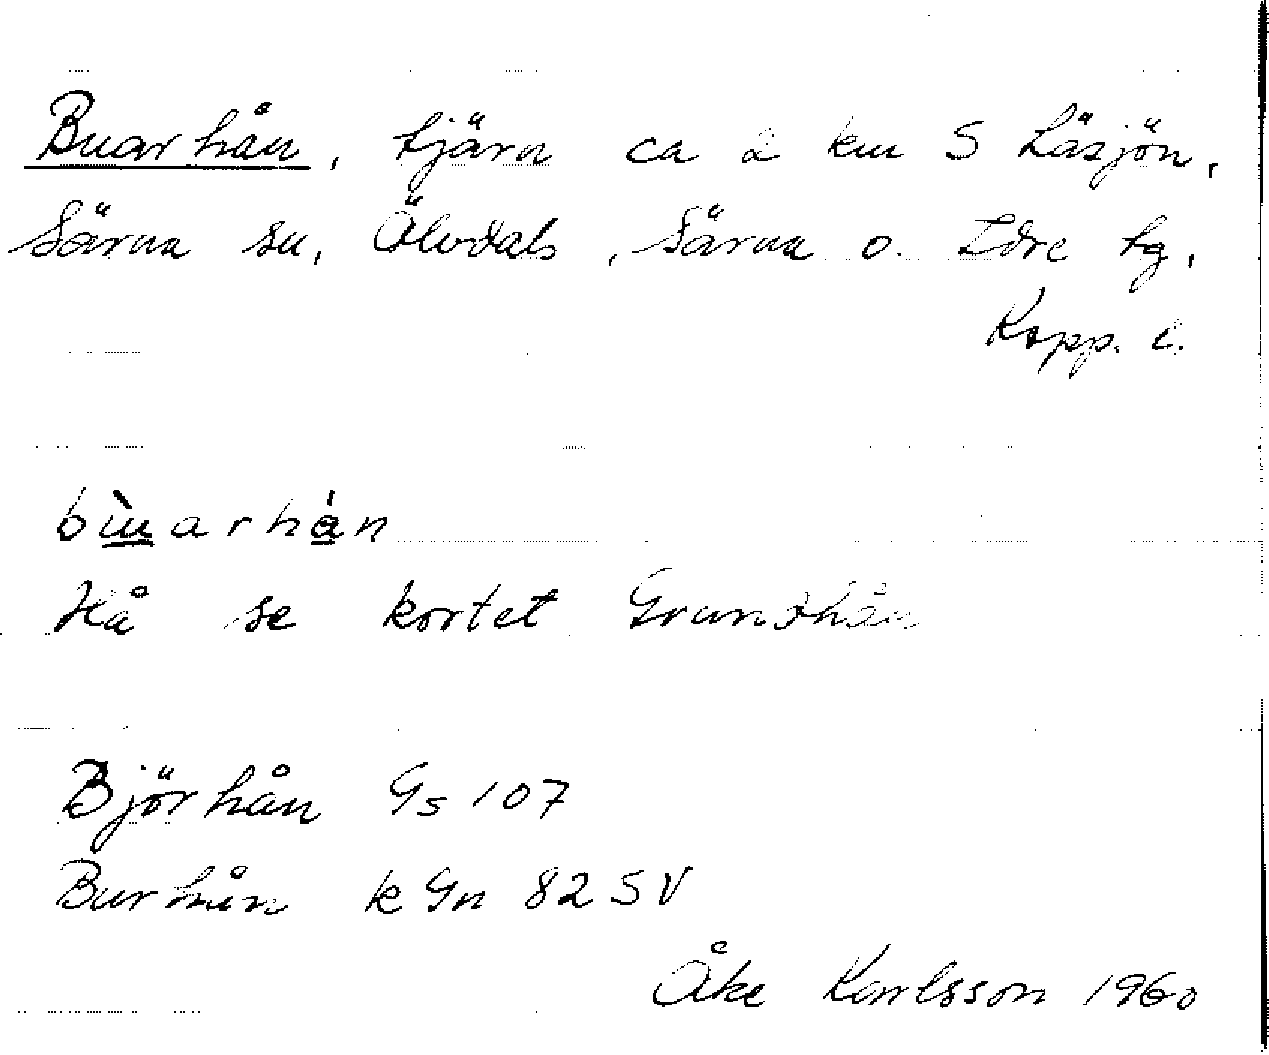 Buarhån, tjärn ca 2 km S Läsjön,
Särna sn, Älvdals, Särna o. Idre tg,
Kopp. l.
bù̲arhá̲n
Hå se kortet Grundhån
Björhån Gs 107
Burhån k Gn 82 SV
Åke Karlsson 1960